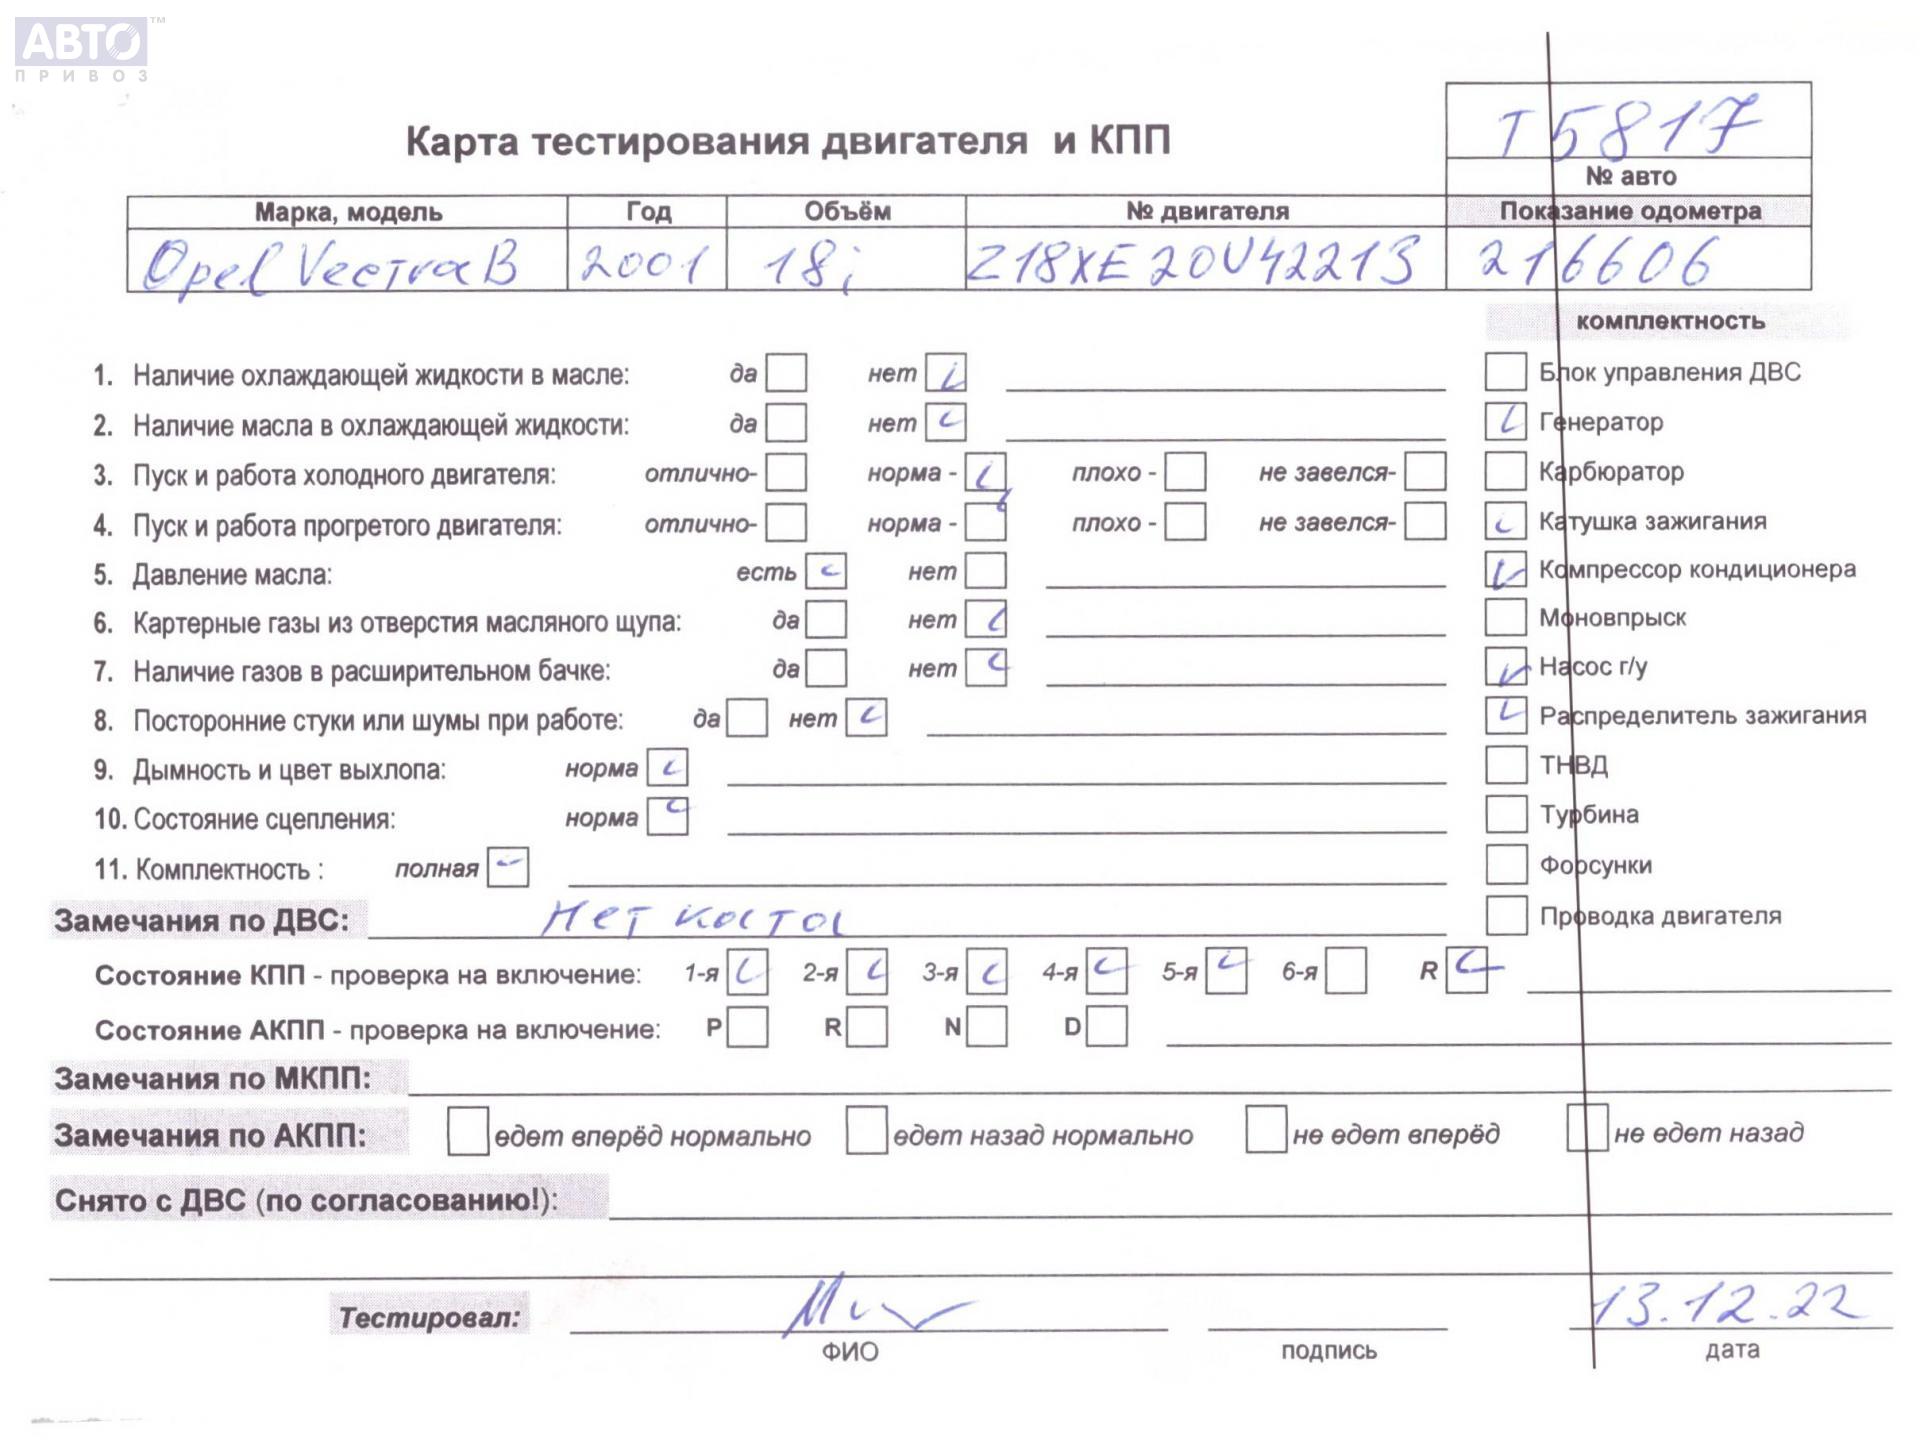 АВТО™
ПРИВОЗ
T5817
Карта тестирования двигателя и КПП
№ авто
Марка, модель Год Объём № двигателя Показание одометра
Opel Vectra B 2001 18i Z18XE20U42213 216606
комплектность
1. Наличие охлаждающей жидкости в масле: да нет Блок управления ДВС
2. Наличие масла в охлаждающей жидкости: да нет Генератор
3. Пуск и работа холодного двигателя: отлично- норма - плохо - не завелся- Карбюратор
4. Пуск и работа прогретого двигателя: отлично- норма - плохо - не завелся- Катушка зажигания
5. Давление масла: есть нет Компрессор кондиционера
6. Картерные газы из отверстия масляного щупа: да нет Моновпрыск
7. Наличие газов в расширительном бачке: да нет Насос г/у
8. Посторонние стуки или шумы при работе: да нет Распределитель зажигания
9. Дымность и цвет выхлопа: норма ТНВД
10. Состояние сцепления: норма Турбина
11. Комплектность : полная Форсунки
Замечания по ДВС: Нет Проводка двигателя
Состояние КПП - проверка на включение: 1-я 2-я 3-я 4-я 5-я 6-я R
Состояние АКПП - проверка на включение: P R N D
Замечания по МКПП:
Замечания по АКПП: едет вперёд нормально едет назад нормально не едет вперёд не едет назад
Снято с ДВС (по согласованию!):
Тестировал: 13.12.22
ФИО подпись дата